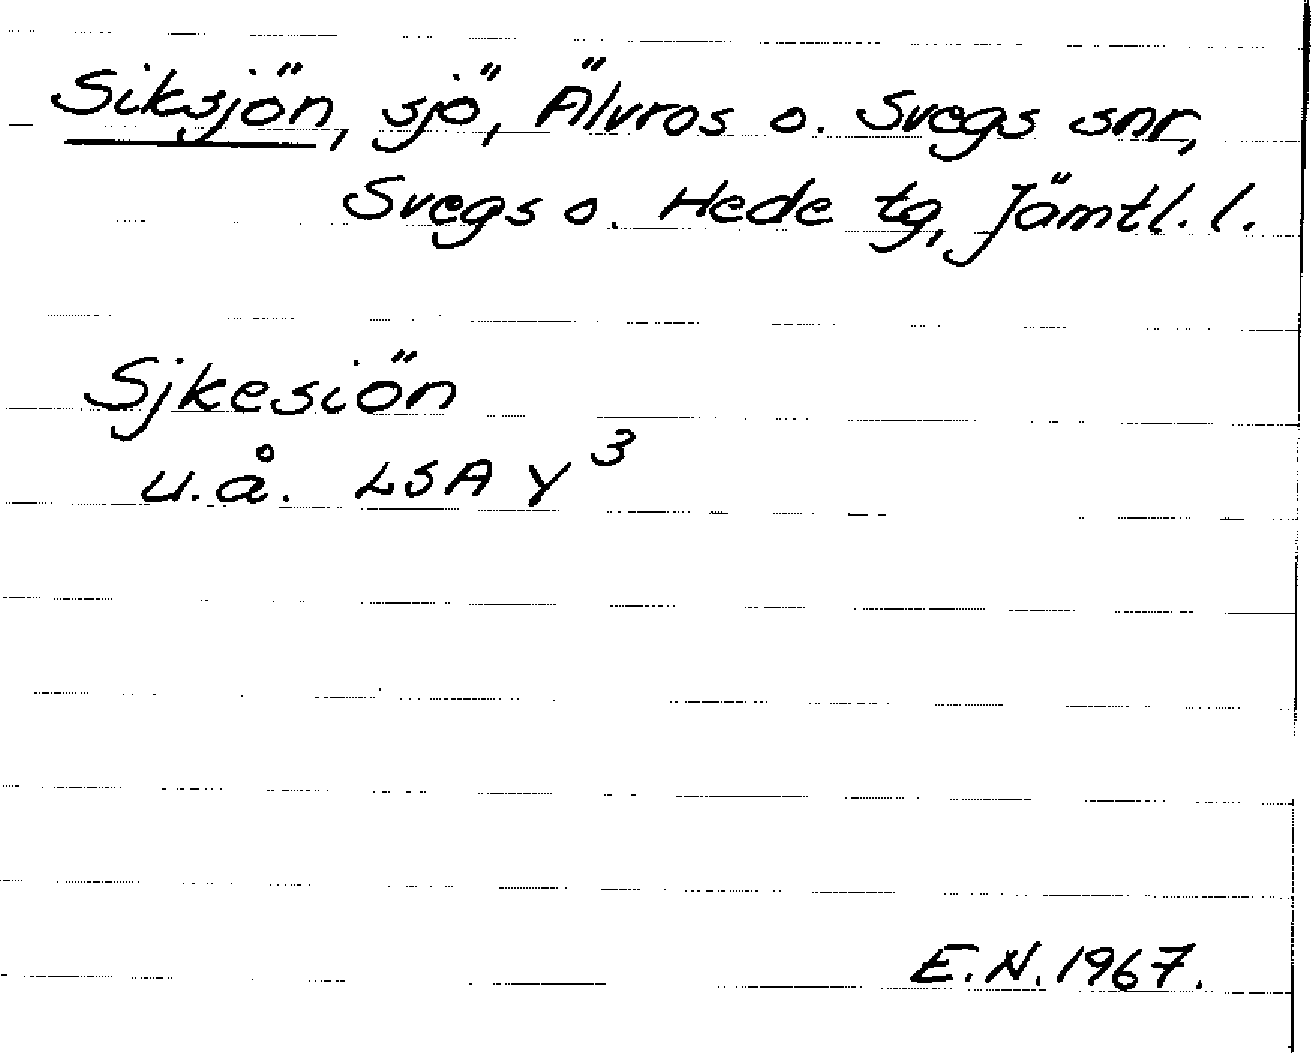 Siksjön, sjö, Älvros o. Svegs snr,
Svegs o. Hede tg, Jämtl. l.
Sjkesiön
u.å. LSA Y³
E.N. 1967.